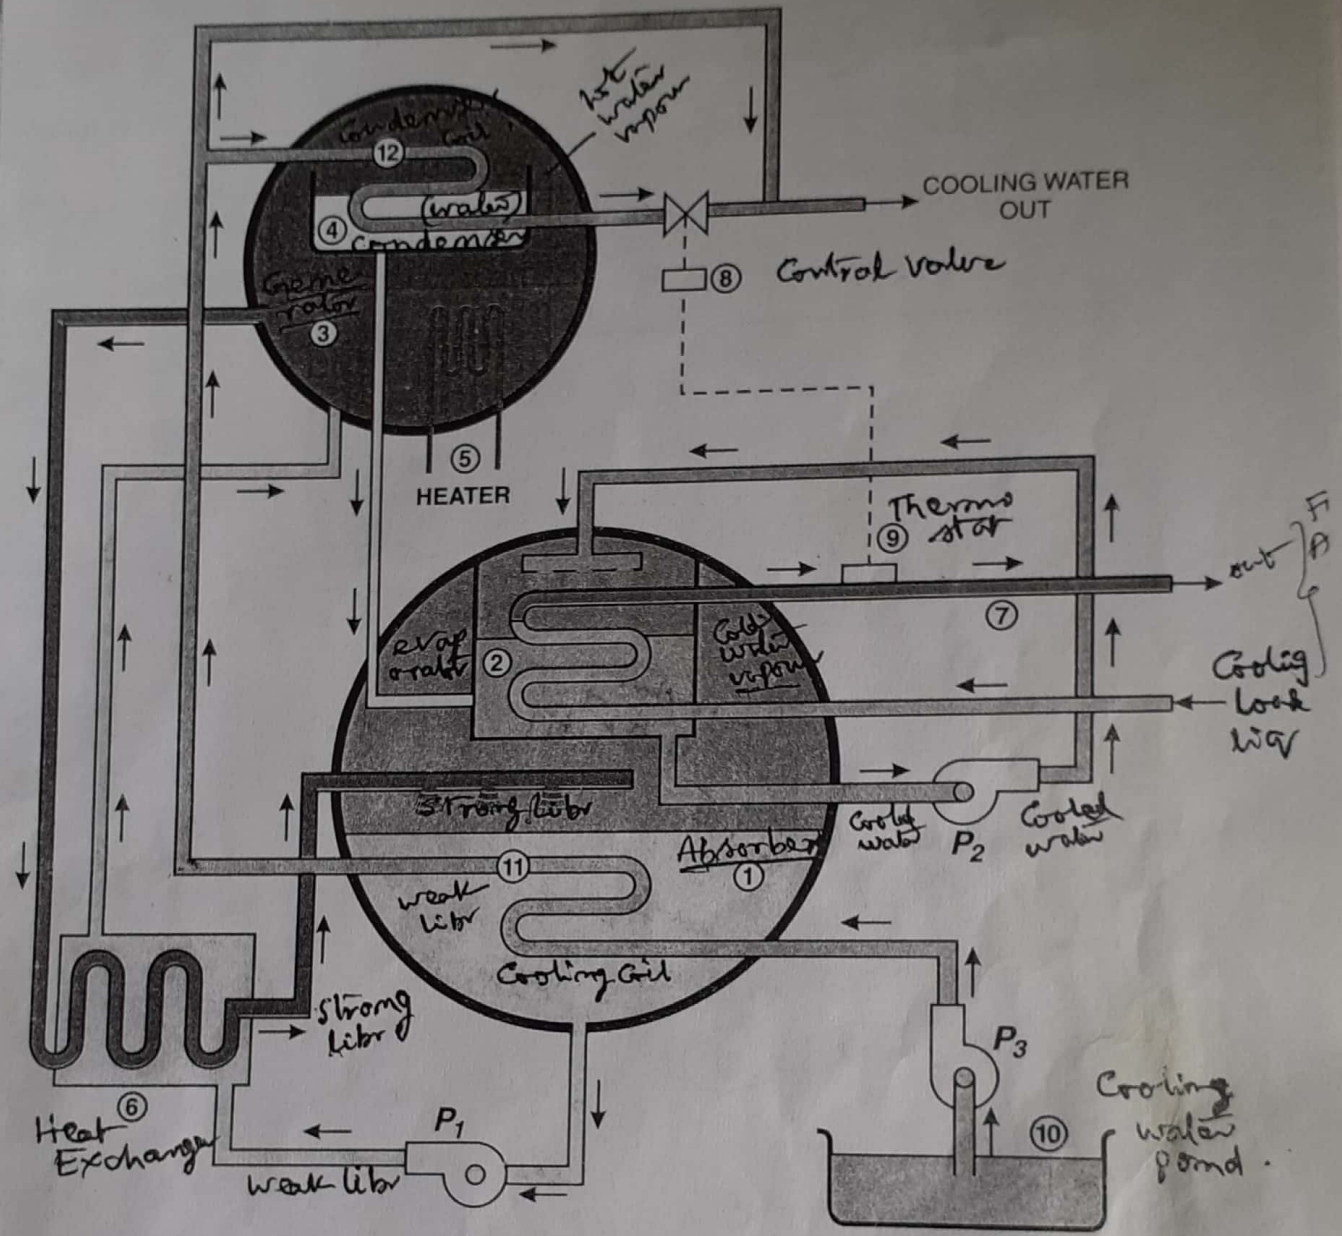 hot
water
vapour
condenser
coil
12
(water)
4
condenser
COOLING WATER
OUT
8
Control valve
Gene
rator
3
5
HEATER
Thermo
stat
9
out
F
A
C
7
evap
orator
2
Cold
water
vapour
Cooling
load
liq
strong libr
Absorber
1
Cooled
water
P2
Cooled
water
11
weak
libr
Cooling Coil
strong
libr
P3
6
Heat
Exchanger
P1
weak libr
10
Cooling
water
pond.